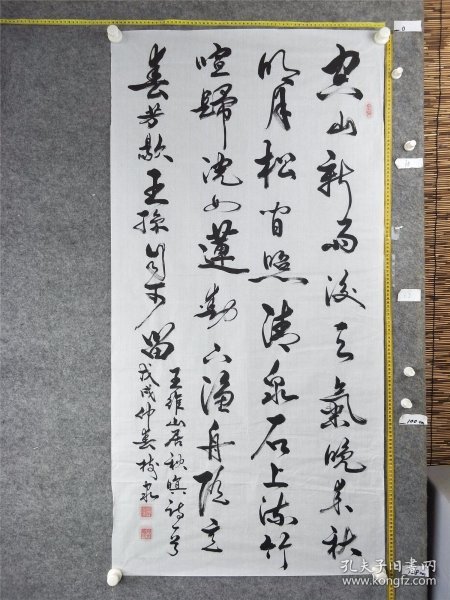 空山新雨後天氣晚來秋
明月松間照清泉石上流竹
喧歸浣女蓮動下漁舟隨意
春芳歇王孫自可留
王維山居秋暝詩一首
戊戌仲春
100cm
孔夫子旧书网
www.kongfz.com